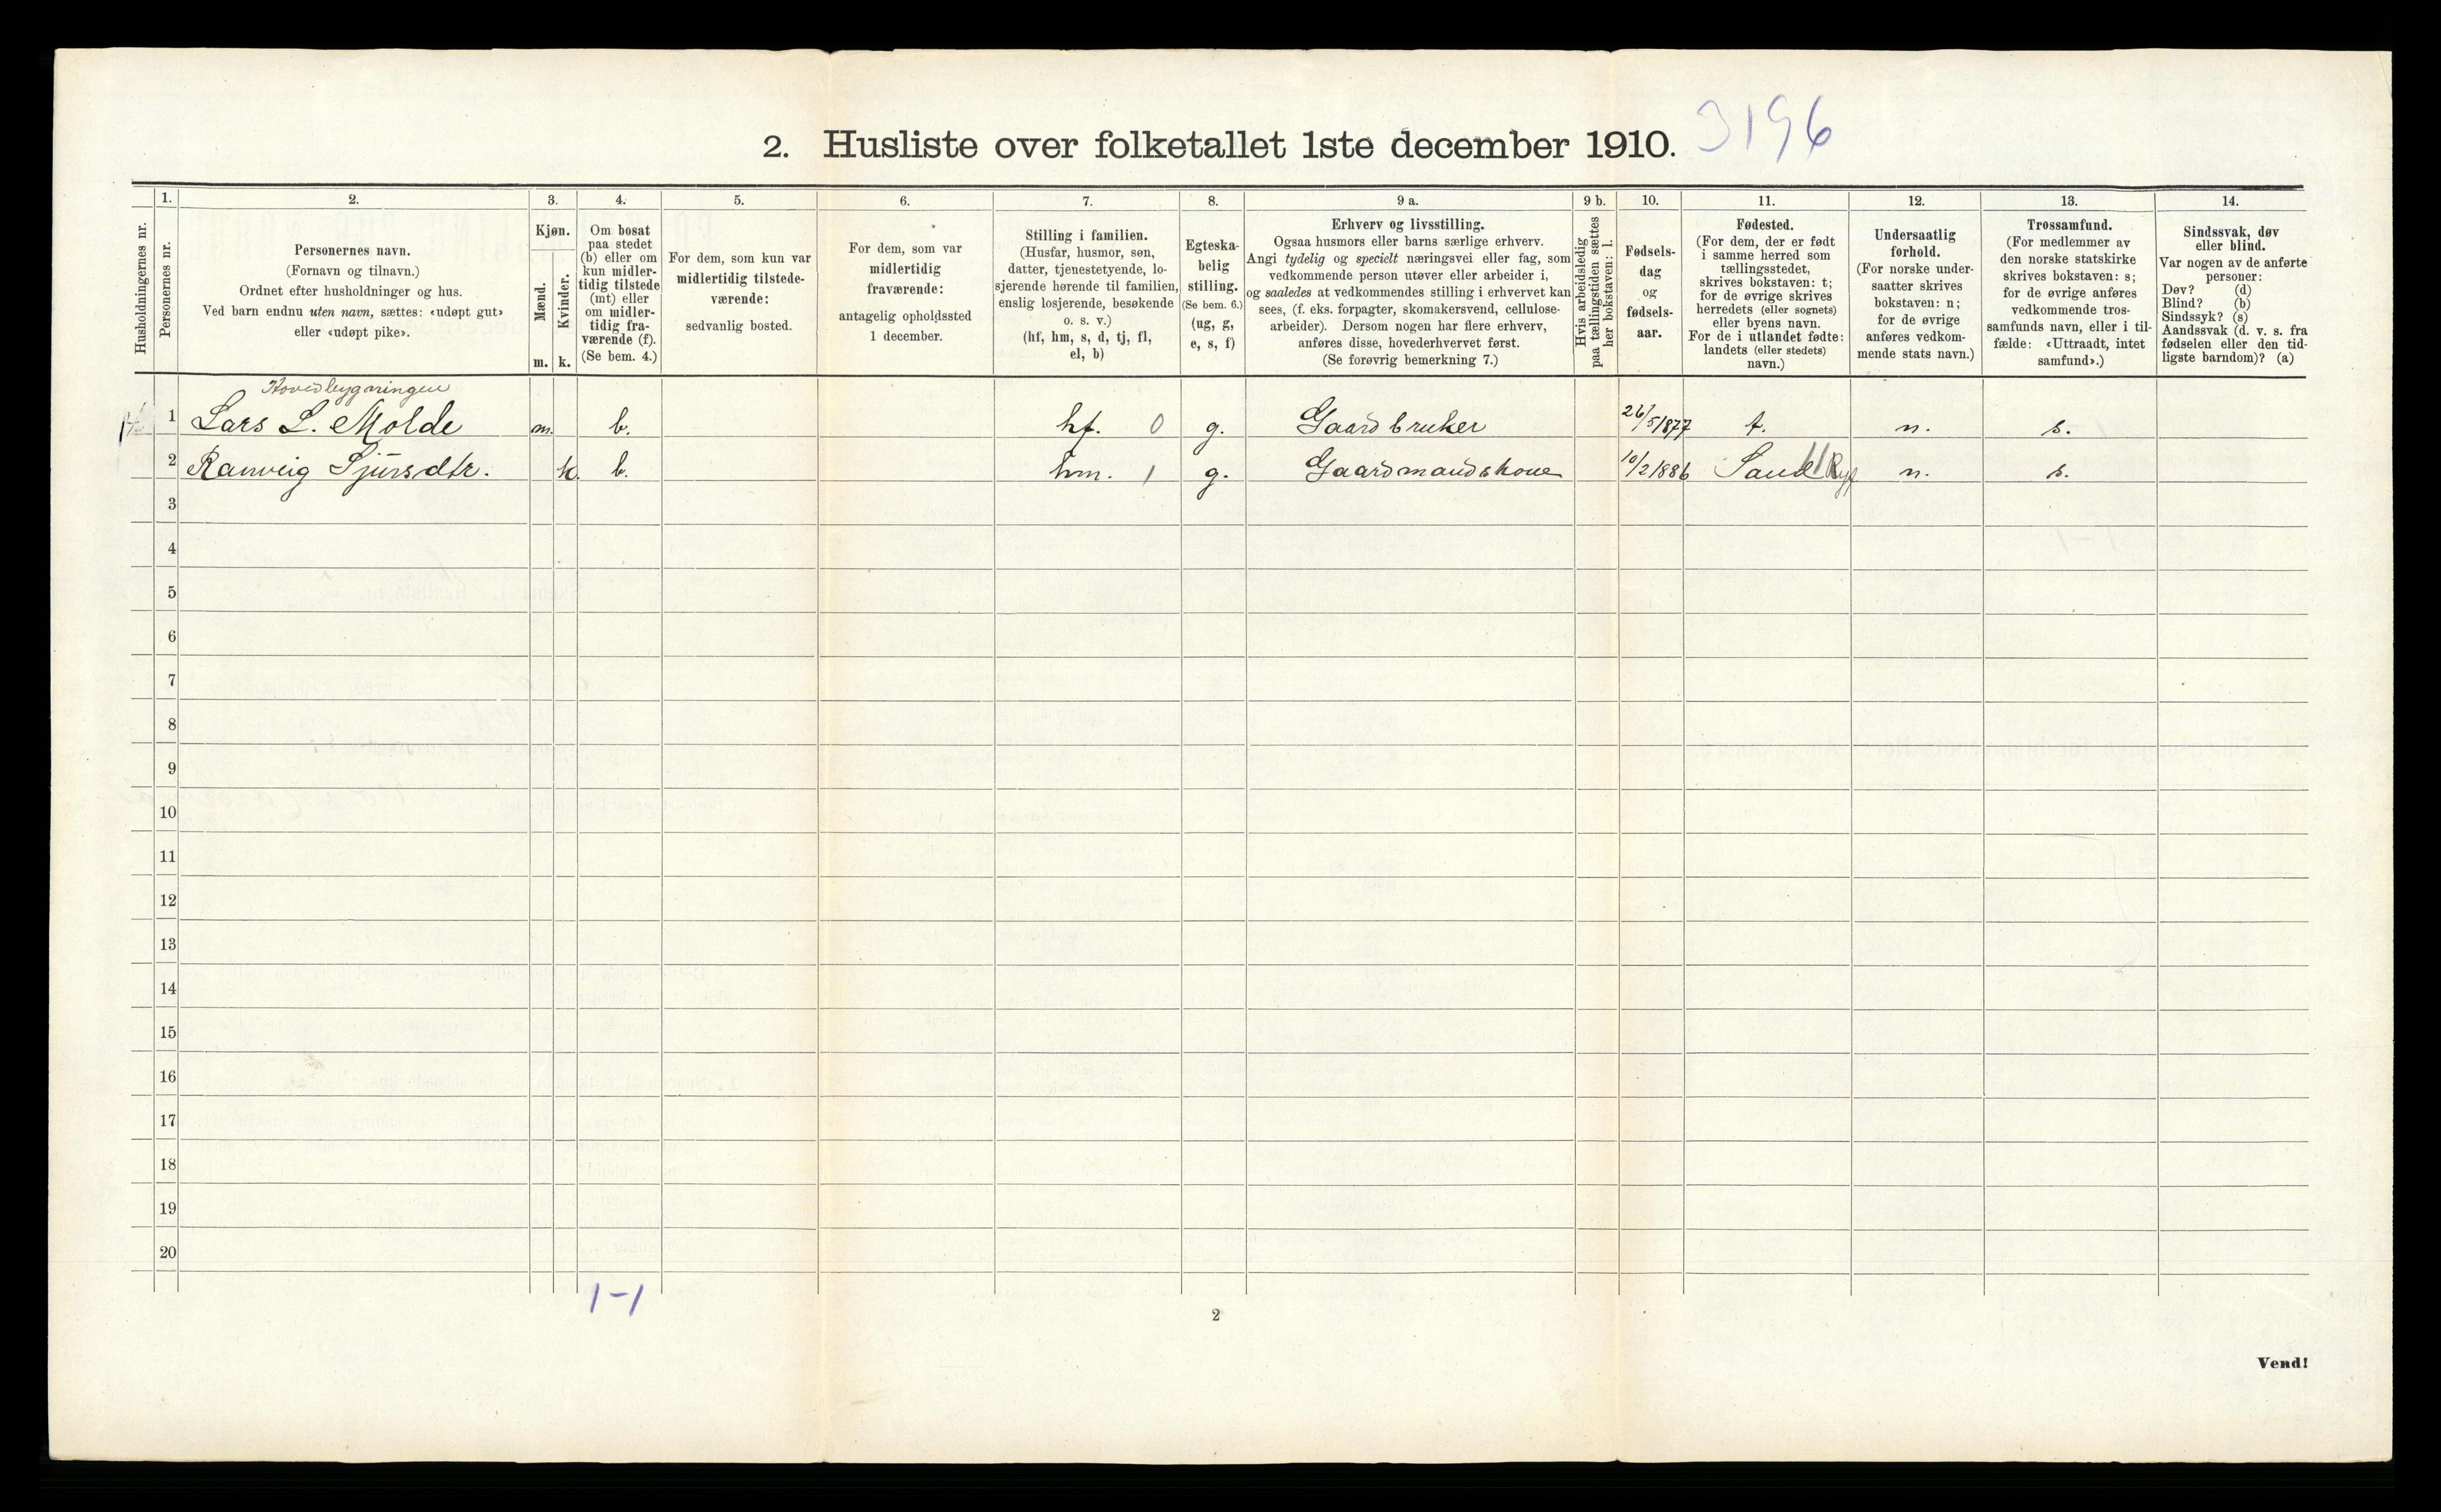 2. Husliste over folketallet 1ste december 1910. 3196
1. 2. 3. 4. 5. 6. 7. 8. 9 a. 9 b. 10. 11. 12. 13. 14.
Husholdningernes nr.
Personernes nr.
Personernes navn.
(Fornavn og tilnavn.)
Ordnet efter husholdninger og hus.
Ved barn endnu uten navn, sættes: «udøpt gut»
eller «udøpt pike».
Kjøn.
Mænd.
Kvinder.
m. k.
Om bosat
paa stedet
(b) eller om
kun midler-
tidig tilstede
(mt) eller
om midler-
tidig fra-
værende (f).
(Se bem. 4.)
For dem, som kun var
midlertidig tilstede-
værende:
sedvanlig bosted.
For dem, som var
midlertidig
fraværende:
antagelig opholdssted
1 december.
Stilling i familien.
(Husfar, husmor, søn,
datter, tjenestetyende, lo-
sjerende hørende til familien,
enslig losjerende, besøkende
o. s. v.)
(hf, hm, s, d, tj, fl,
el, b)
Egteska-
belig
stilling.
(Se bem. 6.)
(ug, g,
e, s, f)
Erhverv og livsstilling.
Ogsaa husmors eller barns særlige erhverv.
Angi tydelig og specielt næringsvei eller fag, som
vedkommende person utøver eller arbeider i,
og saaledes at vedkommendes stilling i erhvervet kan
sees, (f. eks. forpagter, skomakersvend, cellulose-
arbeider). Dersom nogen har flere erhverv,
anføres disse, hovederhvervet først.
(Se forøvrig bemerkning 7.)
Hvis arbeidsledig
paa tællingstiden sættes
her bokstaven: l.
Fødsels-
dag
og
fødsels-
aar.
Fødested.
(For dem, der er født
i samme herred som
tællingsstedet,
skrives bokstaven: t;
for de øvrige skrives
herredets (eller sognets)
eller byens navn.
For de i utlandet fødte:
landets (eller stedets)
navn.)
Undersaatlig
forhold.
(For norske under-
saatter skrives
bokstaven: n;
for de øvrige
anføres vedkom-
mende stats navn.)
Trossamfund.
(For medlemmer av
den norske statskirke
skrives bokstaven: s;
for de øvrige anføres
vedkommende tros-
samfunds navn, eller i til-
fælde: «Uttraadt, intet
samfund».)
Sindssvak, døv
eller blind.
Var nogen av de anførte
personer:
Døv? (d)
Blind? (b)
Sindssyk? (s)
Aandssvak (d. v. s. fra
fødselen eller den tid-
ligste barndom)? (a)
Hovedbygningen
1 Lars L. Molde m. b. hf. 0 g. Gaardbruker 26/5/1877 t. n. s.
2 Ranveig Sjursdtr. k. b. hm. 1 g. Gaardmandskone 10/2/1886 Sand Ryf n. s.
3
4
5
6
7
8
9
10
11
12
13
14
15
16
17
18
19
20
1-1
2
Vend!